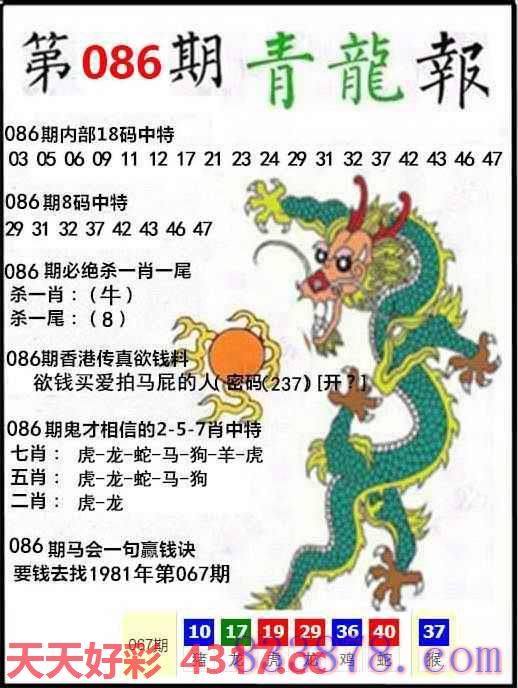 第086期青龍報
086期内部18码中特
03 05 06 09 11 12 17 21 23 24 29 31 32 37 42 43 46 47
086期8码中特
29 31 32 37 42 43 46 47
086期必绝杀一肖一尾
杀一肖：（牛）
杀一尾：（8）
086期香港传真欲钱料
欲钱买爱拍马屁的人（密码（237）[开？]
086期鬼才相信的2-5-7肖中特
七肖：虎-龙-蛇-马-狗-羊-虎
五肖：虎-龙-蛇-马-狗
二肖：虎-龙
086期马会一句赢钱诀
要钱去找1981年第067期
067期 10 17 19 29 36 40 37
猪 龙 虎 龙 鸡 蛇 猴
天天好彩 4317.cc